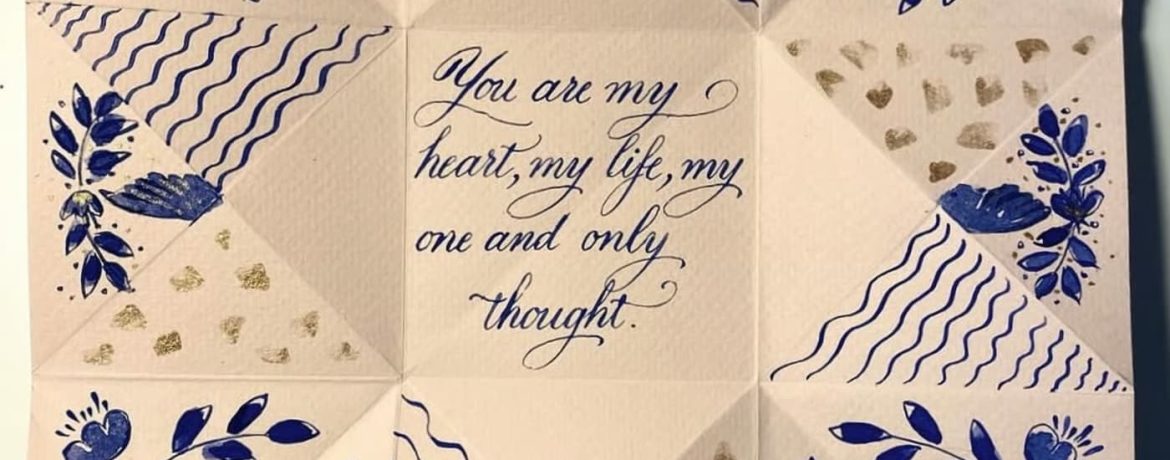 You are my
heart, my life, my
one and only
thought.